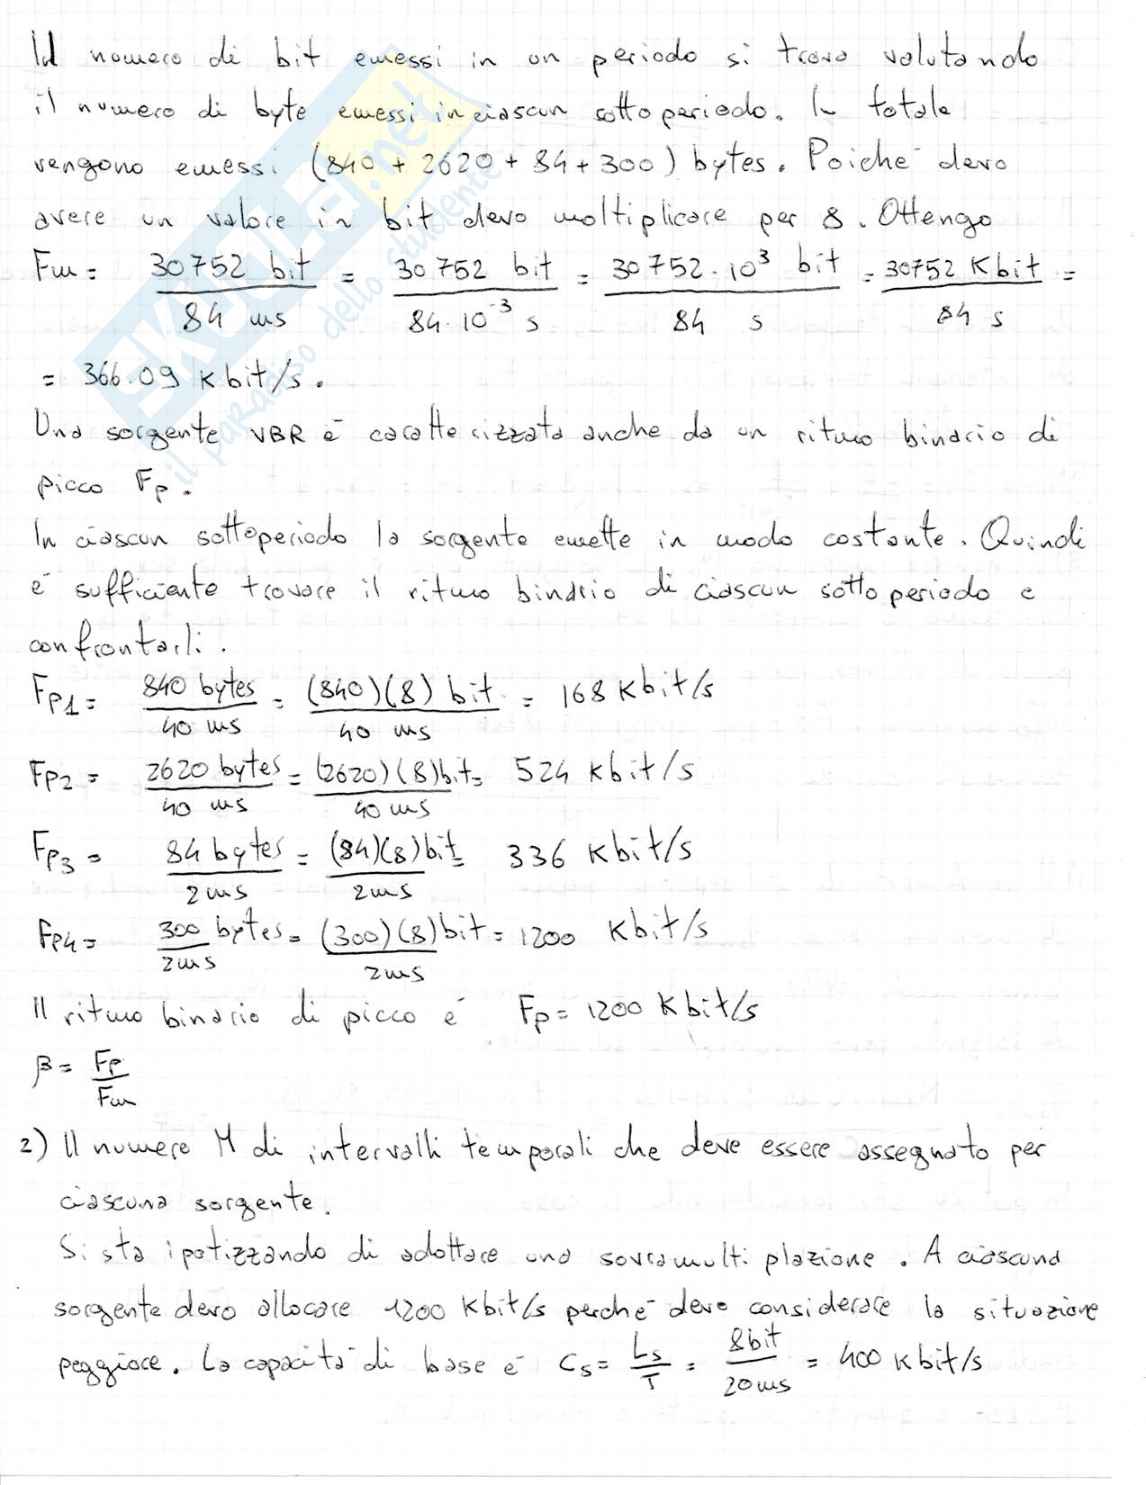 Il numero di bit emessi in un periodo si trova valutando
il numero di byte emessi in ciascun sottoperiodo. In totale
vengono emessi (840 + 2620 + 84 + 300) bytes. Poiché devo
avere un valore in bit devo moltiplicare per 8. Ottengo
Fm = 30752 bit / 84 ms = 30752 bit / 84·10^-3 s = 30752·10^3 bit / 84 s = 30752 Kbit / 84 s =
= 366.09 Kbit/s.
Una sorgente VBR è caratterizzata anche da un ritmo binario di
picco Fp.
In ciascun sottoperiodo la sorgente emette in modo costante. Quindi
è sufficiente trovare il ritmo binario di ciascun sottoperiodo e
confrontarli.
Fp1 = 840 bytes / 40 ms = (840)(8) bit / 40 ms = 168 Kbit/s
Fp2 = 2620 bytes / 40 ms = (2620)(8) bit / 40 ms = 524 Kbit/s
Fp3 = 84 bytes / 2 ms = (84)(8) bit / 2 ms = 336 Kbit/s
Fp4 = 300 bytes / 2 ms = (300)(8) bit / 2 ms = 1200 Kbit/s
Il ritmo binario di picco è Fp = 1200 Kbit/s
β = Fp / Fm
2) Il numero M di intervalli temporali che deve essere assegnato per
ciascuna sorgente.
Si sta ipotizzando di adottare una sovramultiplazione. A ciascuna
sorgente devo allocare 1200 Kbit/s perché devo considerare la situazione
peggiore. La capacità di base è Cs = Ls / T = 8 bit / 20 ms = 400 Kbit/s
SKUOLA.net
il paradiso dello studente